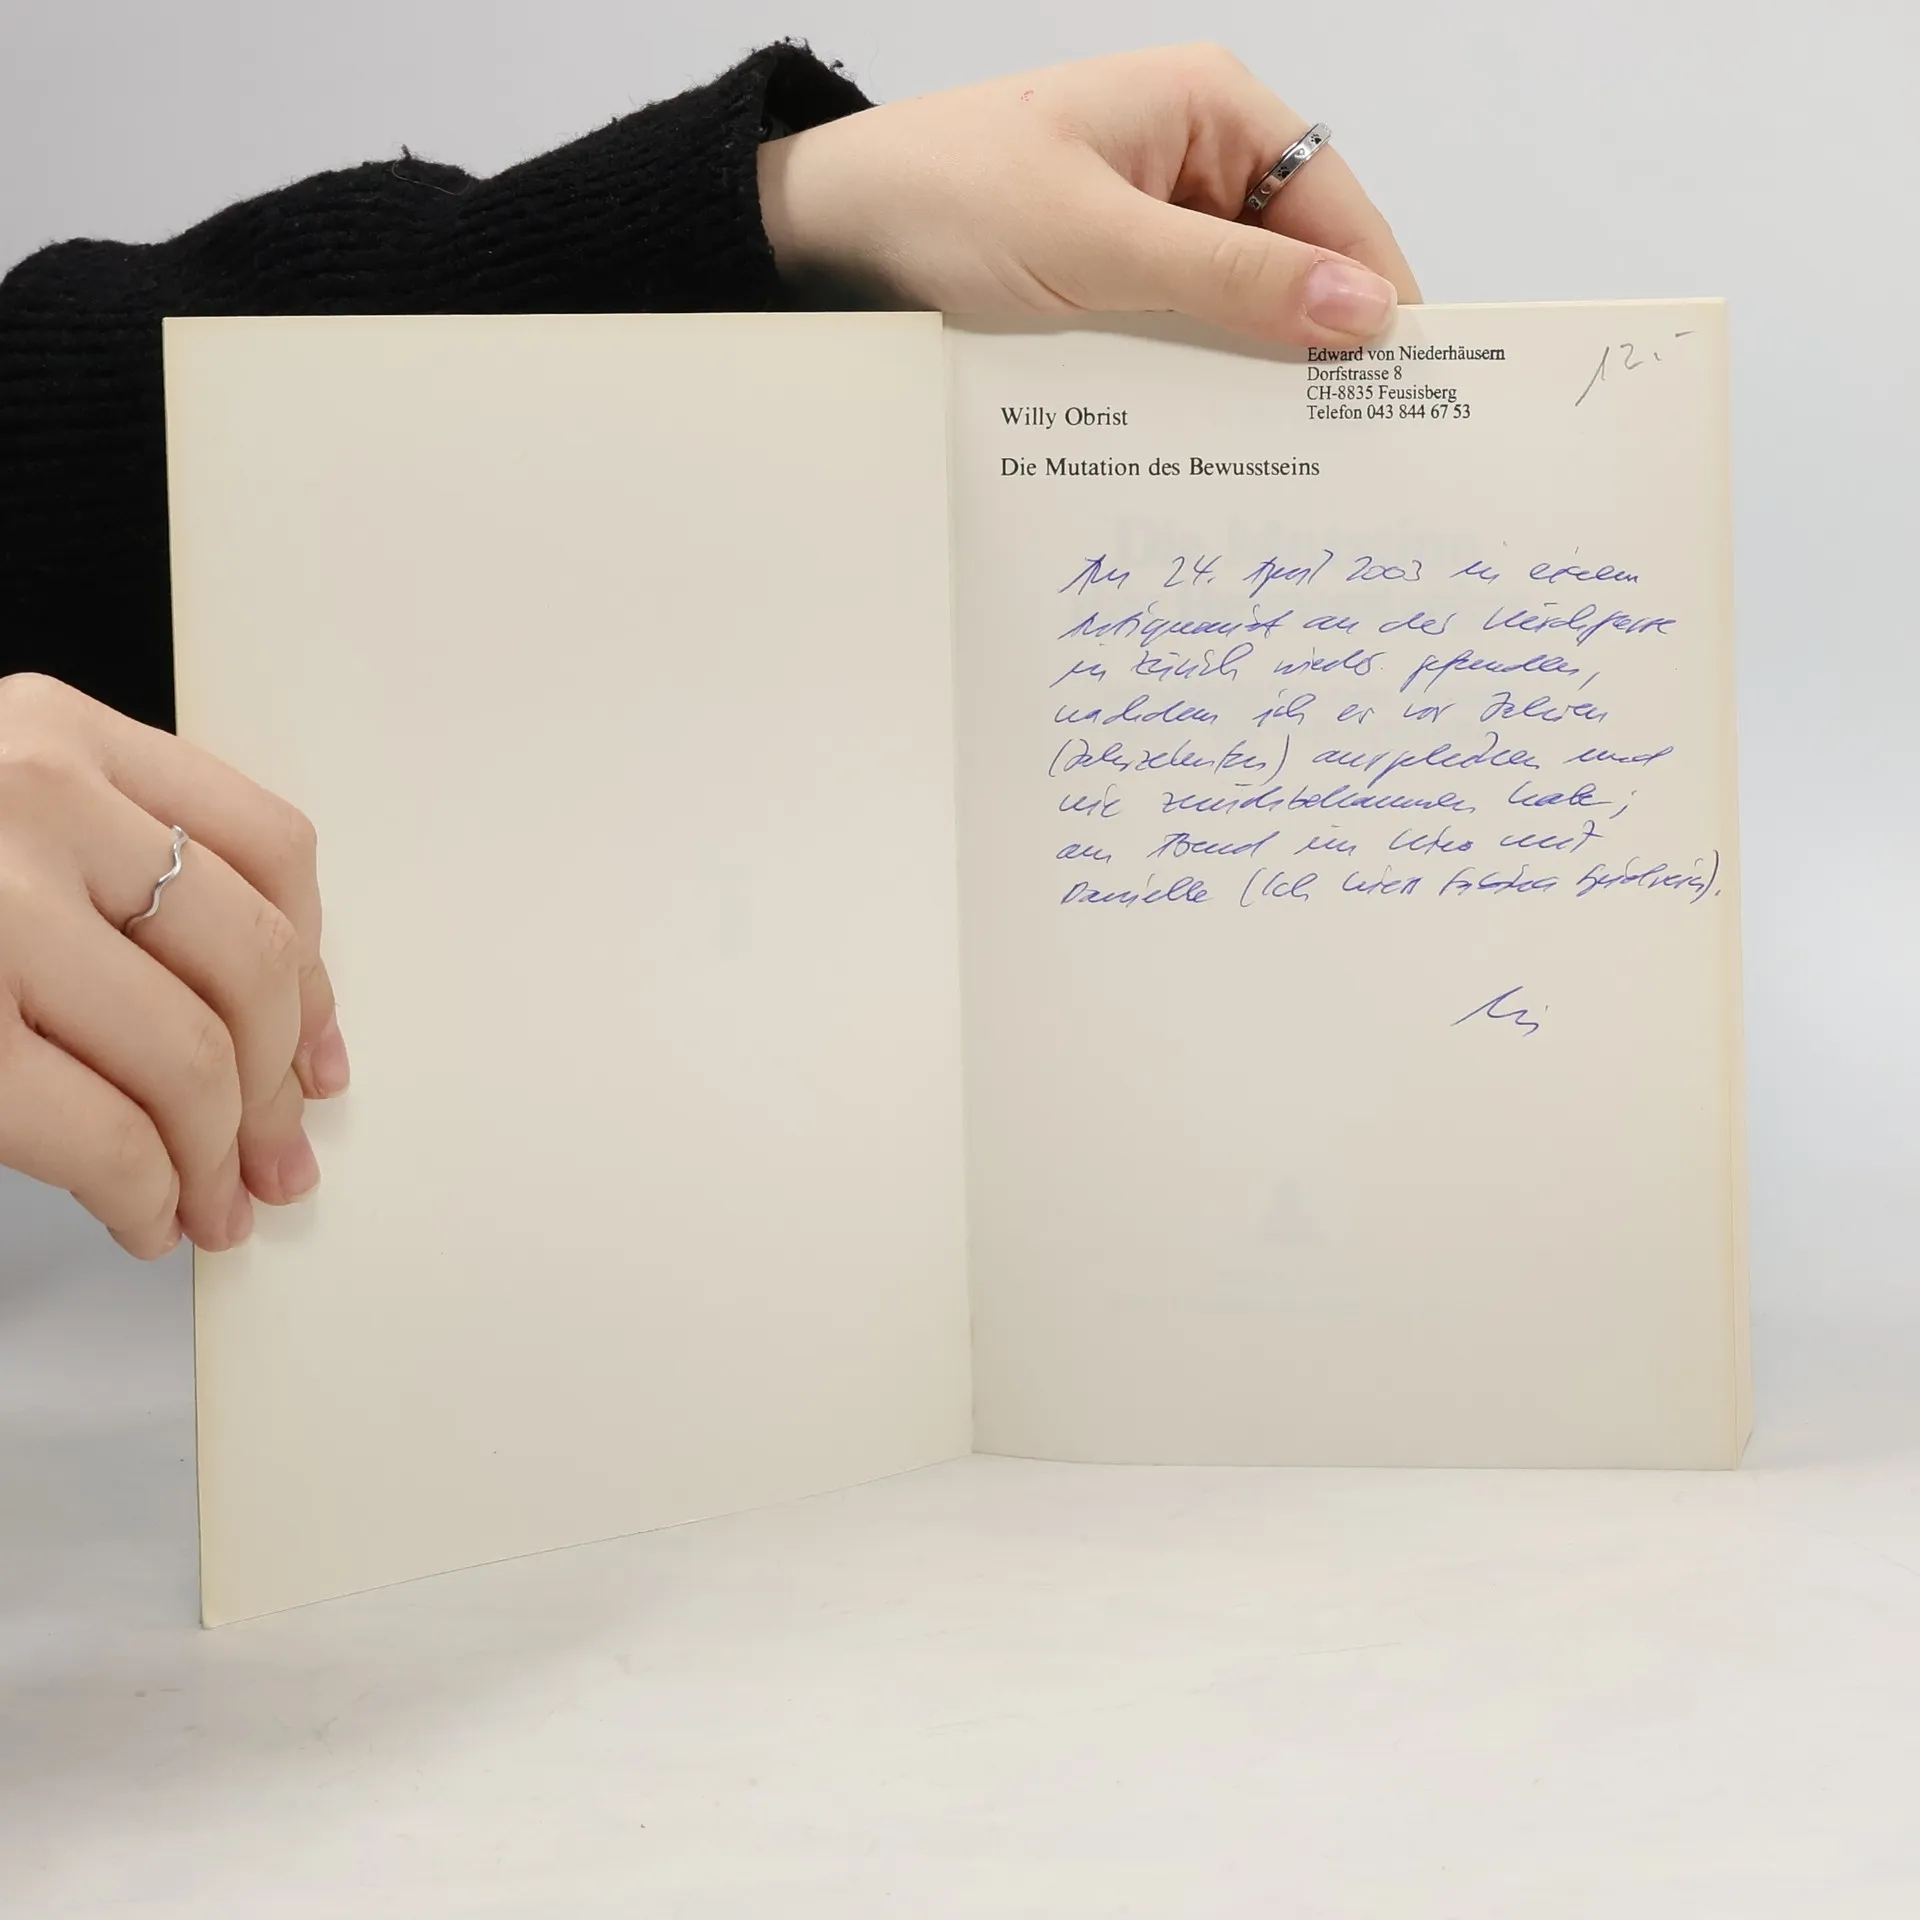 Edward von Niederhäusern
Dorfstrasse 8
CH-8835 Feusisberg
Telefon 043 844 67 53
12.-
Willy Obrist
Die Mutation des Bewusstseins
Am 24. April 2003 in einem
Antiquariat an der Kirchgasse
in Zürich wieder gefunden,
nachdem ich es vor Jahren
(Jahrzehnten) ausgeliehen und
nie zurückbekommen habe;
am Abend im Kino mit
Danielle (Ich hiess Sabina Spielrein).